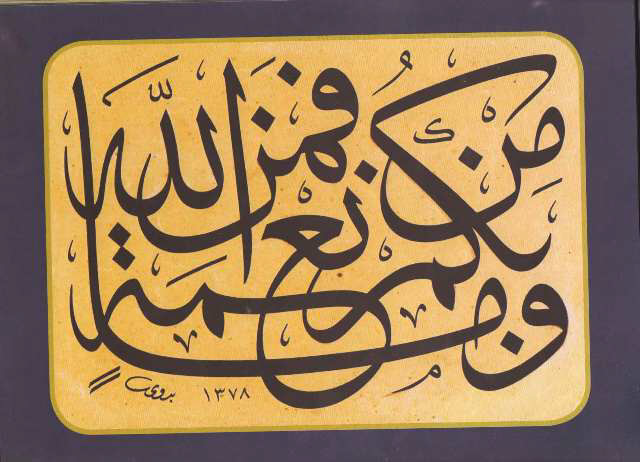 وَمَا بِكُم مِّن نِّعْمَةٍ فَمِنَ اللَّهِ
بدوي ١٣٧٨